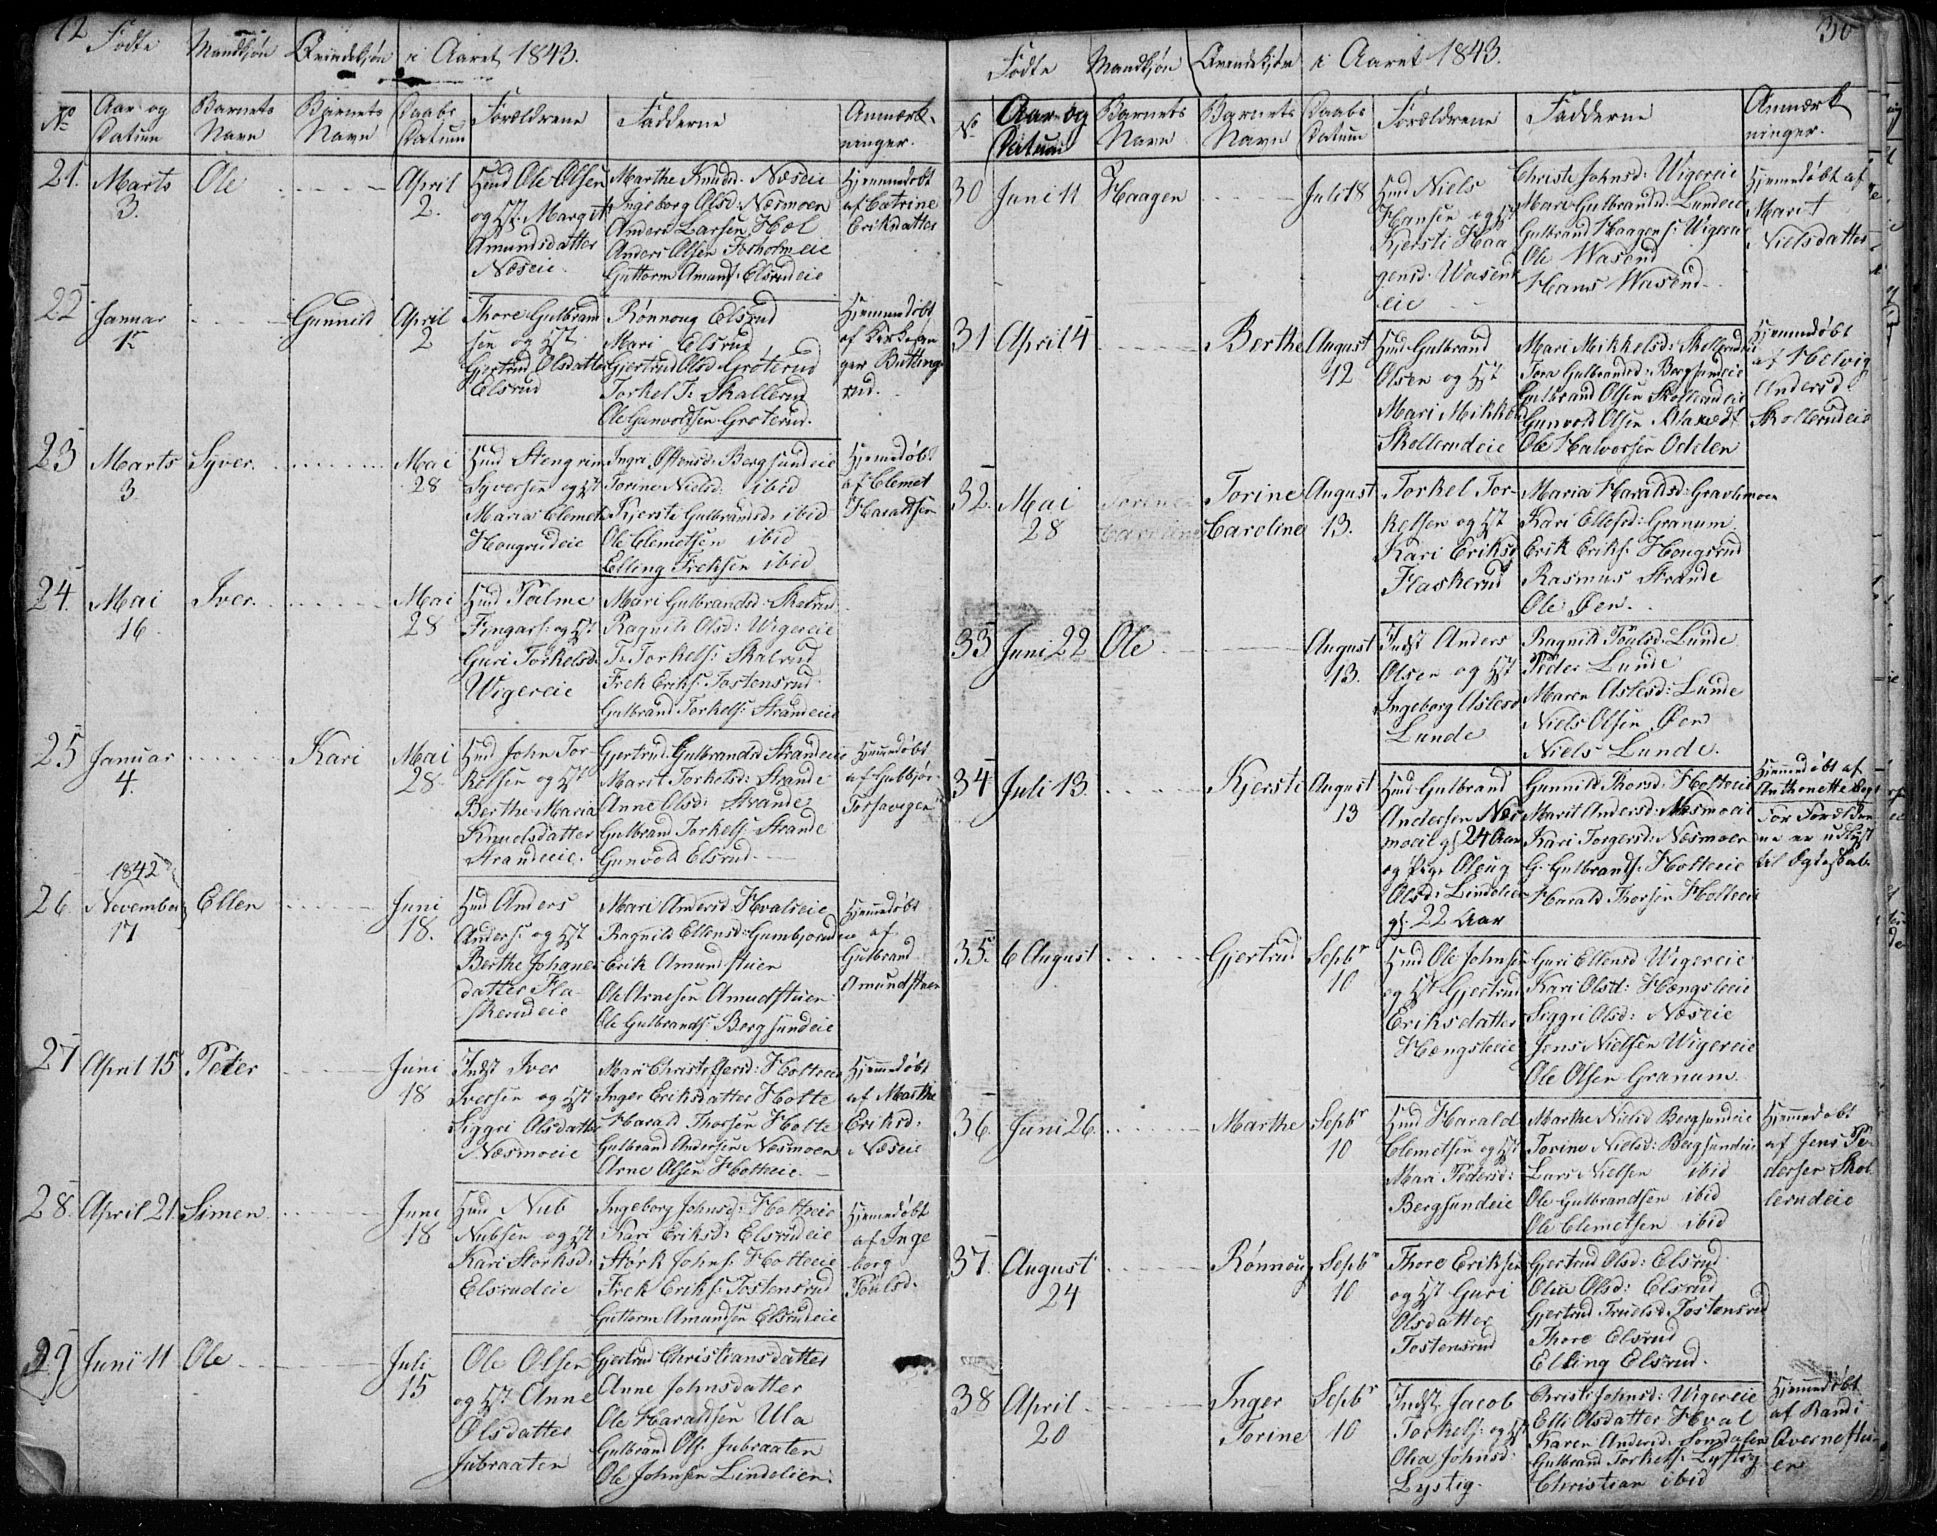 12
Fødte Mandkjøn Qvindekjøn i Aaret 1843.
No
Aar og
Datum
Barnets
Navn
Barnets
Navn
Daabs
Datum
Forældrene
Fadderne
Anmærk-
ninger.
21.
Marts
3.
Ole
April
2.
Huusmd Ole Olsen
og Hst. Margit
Amundsdatter
Næseie.
Marthe Knudsd. Næseie
Ingeborg Olsd: Næsmoen
Anders Larsen Hol
Anders Olsen
Guttorm Amunds: Elsrudeie
Hjemmedøbt
af Catrine
Eriksdatter
22
Januar
Gunnild
April
2
Thore Gulbrand
sen og Hst
Gjertrud Olsdatter
Elsrud
Rønnoug Elsrud
Mari Elsrud
Gjertrud Olsd. Grøterud
Torkel T. Skallerud
Ole Gunvoldsen Grøterud.
Hjemmedøbt
af Kirkesan
ger Butting
rud.
23
Marts
3
Syver.
Mai
28
Hmd Stengrim
Syversen og Hst
Maria Clemets
Hougrudeie
Ingri Ostensd: Bergsundeie
Torine Nielsd. ibid
Kjersti Gulbrandsd: ibid
Ole Clemetsen ibid
Elling Freksen ibid
Hjemmedøbt
af Clemet
Haraldsen
24.
Mai
16.
Iver.
Mai
28
Hmd Palme
Fingars: og Hst
Guri Torkelsd.
Wigereie
Mari Gulbrandsd: Skalrud
Ragnild Olsd: Wigereie
T. Torkels: Skalrud
Frek Eriks: Tostensrud
Gulbrand Torkels: Strandeie
25
Januar
4.
Kari
Mai
28.
Hmd John Tor-
kelsen og Hst
Berthe Maria
Knudsdatter
Strandeie.
Gjertrud Gulbrandsd Strandeie
Marit Torkelsd: Strande
Anne Olsd: Strande
Gulbrand Torkels: Strande
Gunvold Elsrud.
Hjemmedøbt
af Gubbjør
26.
1842
November
17
Ellen
Juni
18.
Hmd Anders
Anders: og Hst
Berthe Johanes
datter Fla-
skerudeie
Mari Andersd Hvalseie
Ragnild Ellensd: Gumbjornden
Erik Amundstuen
Ole Arnesen Amundstuen
Ole Gulbrands: Bergsundeie
Hjemmedøbt
af
Gulbrand
Amundstuen
27
April 15
Peter
Juni
18
Indst Iver
Iversen og Hst
Siggri Olsdatter
Næsmoeie
Mari Christophersd: Holteeie
Inger Eriksdatter Holte
Harald Thorsen Holte
Gulbrand Andersen Næsmoen
Arne Olsen Holteeie.
Hjemmedøbt
af Marthe
Eriksd:
Næseie
28.
April 21
Simen
Juni
18
Hmd Nub
Nubsen og Hst
Kari Størksd:
Elsrudeie
Ingeborg Johnsd: Holteeie
Kari Eriksd: Elsrudeie
Størk Johns: Holteeie
Frek Eriks: Tostensrud
Guttorm Amundsen Elsrudeie
Hjemmedøbt
af Inge
borg
Poulsd.
29
Juni 11
Ole
Juli
15
Ole Olsen
og Hst. Anne
Olsdatter
Jubraaten
Gjertrud Christiansdatter
Anne Johnsdatter
Ole Haraldsen Ula
Gulbrand Ols: Jubraaten
Ole Johnsen Lindelien.
30
Fødte Mandkjøn Qvindekjøn i Aaret 1843.
No
Aar og
Datum
Barnets
Navn
Barnets
Navn
Daabs
Datum
Forældrene
Fadderne
Anmærk
ninger.
30
Juni 11
Haagen
Juli 18
Hmd Niels
Hansen og Hst
Kjersti Haa
gensd. Wasend
eie
Christi Johnsd: Wigereie
Mari Gulbrandsd. Lundeeie
Gulbrand Haagens: Wigereie
Ole Wasend
Hans Wasend.
Hjemmedøbt af
Marit
Nielsdatter
31
April 4
Berthe
August
12
Hmd Gulbrand
Olsen og Hst
Mari Mikkelsd
Skollerudeie
Mari Mikkelsd: Skollerudeie
Tora Gulbrandsd: Bergsundeie
Gulbrand Olsen Skollerudeie
Gunvold Olsen
Ole Halvorsen Odelen
Hjemmedøbt
af Helvig
Andersd.
Skollerudeie
32.
Mai
28
Torine
Caroline
August
13.
Torkel Tor-
kelsen og Hst
Kari Eriksd
Flaskerud
Maria Haraldsd: Gravlimoen
Kari Ellefsd: Granum
Erik Eriks: Hougsrud
Rasmus Strande
Ole Øen.
33
Juni 22
Ole
August
13.
Indst Anders
Olsen og Hst
Ingeborg Aslesd
Lunde
Ragnild Poulsd. Lunde
Peder Lunde
Maren Aslesd: Lunde
Niels Olsen Øen
Niels Lunde.
34
Juli 13
Kjersti
August
13
Hmd Gulbrand
Andersen Næs
moeie gl 24 Aar
og Pige Oleug
Olsd: Lindelien
gl. 22 Aar
Gunnild Thorsd. Holteeie
Marit Andersd: Næsmoeie
Kari Torgersd: Næsmoen
G. Gulbrands: Holteeie
Harald Thorsen Holteeie
Hjemmedøbt af
Anthonette
For Forældre
ne er udlyst
til Ægteskab
35.
6 August
Gjertrud
Septbr
10
Hmd Ole Johnsen
og Hst Gjertrud
Eriksdatter
Hængsleeie
Guri Ellensd Wigereie
Kari Olsd: Hængsleeie
Siggri Olsd: Næseie
Jens Nielsen Wigereie
Ole Olsen Granum.
36.
Juni 26
Marthe
Septbr
10
Hmd Harald
Clemetsen og Hst
Mari Pedersd:
Bergsundeie
Marthe Nielsd Bergsundeie
Torine Nielsd: Bergsundeie
Lars Nielsen ibid
Ole Gulbrandsen ibid
Ole Clemetsen ibid
Hjemmedøbt
af Jens Pe-
dersen Skol
lerudeie
37.
August
24
Rønnoug
Septbr
10
Thore Eriksen
og Hst Guri
Olsdatter
Tostensrud
Gjertrud Olsd: Elsrud
Olia Olsd: Elsrud
Gjertrud Truelsd Tostensrud
Thore Elsrud
Elling Elsrud.
38
April
20
Inger
Torine
Septbr
10
Indst Jacob
Torkels: og Hst
Olia Johnsd:
Lystig.
Christi Johnsd: Wigereie
Elli Olsdatter Hval
Karen Andersd: Somdalen
Gulbrand Torkels: Lystig
Christian ibid
Hjemmedøbt
af Randi
Qvernestu-
en